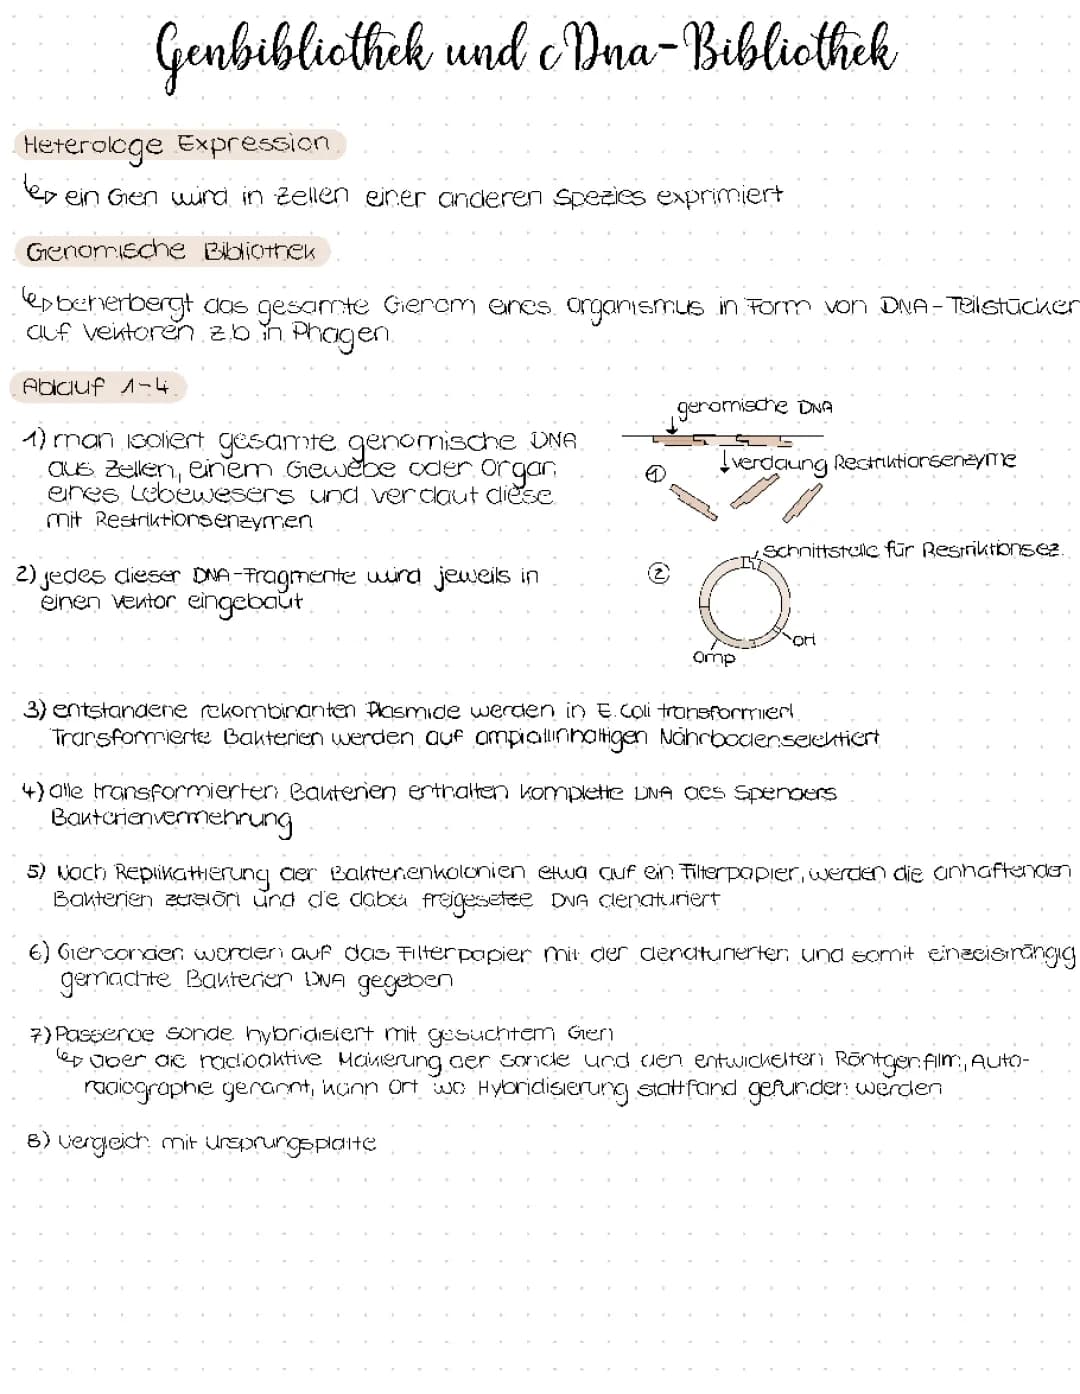 Genbibliothek und cDna-Bibliothek
Heterologe Expression
↳ ein Gen wird in Zellen einer anderen Spezies exprimiert
Genomische Bibliothek
↳ beherbergt das gesamte Genom eines Organismus in Form von DNA-Teilstücken
auf Vektoren z.b in Phagen
Ablauf 1-4
1) man isoliert gesamte genomische DNA
aus Zellen, einem Gewebe oder Organ
eines Lebewesens und verdaut diese
mit Restriktionsenzymen
genomische DNA
↓verdaung Restriktionsenzyme
①
2) jedes dieser DNA-Fragmente wird jeweils in
einen Vektor eingebaut
②
Schnittstelle für Restriktionsez.
ori
amp
3) entstandene rekombinanten Plasmide werden in E.Coli transformiert
Transformierte Bakterien werden auf ampicillinhaltigen Nährboden selektiert
4) alle transformierten Bakterien enthalten komplette DNA des Spenders
Bakterienvermehrung
5) Nach Replikattierung der Bakterienkolonien etwa auf ein Filterpapier, werden die anhaftenden
Bakterien zerstört und die dabei freigesetze DNA denaturiert
6) Gensonden werden auf das Filterpapier mit der denaturierten und somit einzelsträngig
gemachte Bakterien DNA gegeben
7) Passende Sonde hybridisiert mit gesuchtem Gen
↳ über die radioaktive Markierung der Sonde und den entwickelten Röntgenfilm, Auto-
radiographie genannt, kann Ort wo Hybridisierung stattfand gefunden werden
8) Vergleich mit Ursprungsplatte